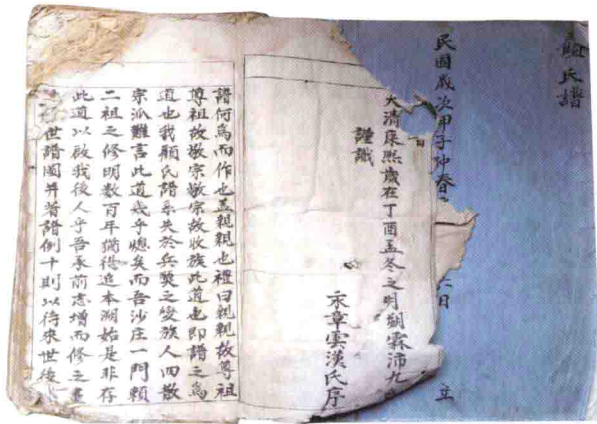 氏譜
民國歲次甲子仲春
日
立
大清康熙歲在丁酉孟冬之明朔霖沛九
謹識
永章雲漢氏序
譜何為而作也盖親親也禮曰親親故尊祖
尊祖故敬宗敬宗故收族此道也即譜之為
道也我顧氏譜系失於兵燹之後族人四散
宗派難言此道幾乎熄矣而吾沙庄一門賴
二祖之修明數百年猶得追本溯始是非存
此道以啟我後人乎吾承前志增而修之畫
世譜圖并著譜例十則以待來世後